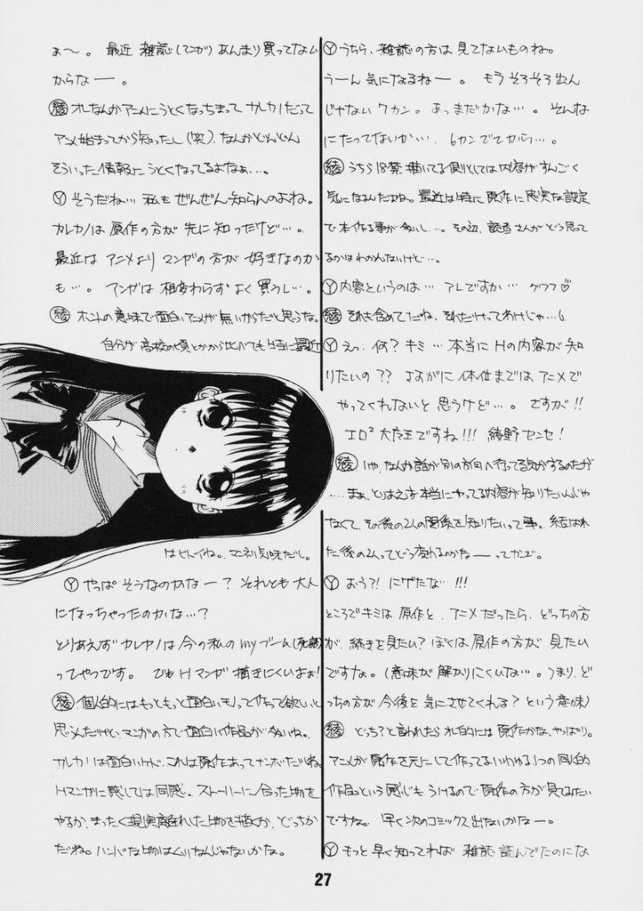 ぁ〜。最近 雑誌(マンガ)あんまり買ってない
からなー。
綾 オレなんかアニメにうとくなっちまって カレカノだって
アニメ始まってから知ったし(笑)。なんかどんどん
そういった情報にうとくなってるよなぁ…。
Y そうだね… 私も ぜんぜん知らんのよね。
カレカノは 原作の方が 先に知ったけど…。
最近は アニメより マンガの方が 好きなのか
も…。マンガは 相変わらず よく買うし…。
綾 ホントの意味で面白いアニメが無いからだと思うな。
自分が高校の頃とかから比べても特に最近
はヒドイね。マニア狙いだし。
Y やっぱ そうなのかなー? それとも 大人
になっちゃったのかな…?
とりあえず カレカノは 今の私のmyブーム(死語)
ってやつです。
綾 個人的にはもっともっと面白いモノって作って欲しいと
思うんだけど、マンガの方で面白い作品が多いね。
カレカノは面白いけど、これは原作あってナンボだしね。
Hマンガに関しては同感。ストーリーに合った物を
やるか、まったく現実離れした物を描くか、どっちか
だね。ハンパな物はムリなんじゃないかな。
Y うちら、雑誌の方は 見てないものね。
うーん 気になるねー。もう そろそろ 出ん
じゃない 7カン。あっ まだかな…。そんな
にたってないか…、6カンでてから…。
綾 うちら18禁 描いてる側としては内容がすんごく
気になるんだよね。最近は特に 原作に忠実な設定
で本作る事が多いし…。その辺、読者さんがどう思って
るかはわかんないけど…。
Y 内容というのは… アレですか… グフフ♡
綾 それも含めてだね、それだけってわけじゃ…
Y えっ、何? キミ… 本当に Hの内容が知
りたいの?? さすがに 体位までは アニメで
やってくれないと 思うけど…。さすが!!
エロ²大魔王ですね!!! 綾野センセ!
綾 いや、なんか話が別の方向へ行ってる気がするのだが
…まぁ、とりあえず本当にやってる内容が知りたいんじゃ
なくて、その後の2人の関係を知りたいって事。結ばれ
た後の2人ってどう変わるのかなーってカンジ。
Y おう?! にげたな…!!!
ところで キミは 原作と、アニメ だったら、どっちの方
が、続きを見たい? ぼくは 原作の方が 見たい
ですな。(意味が 解かりにくいな…。つまり、ど
っちの方が 今後を 気にさせてくれる? という意味)
綾 どっち?と言われたら オレ的には 原作かな、やっぱり。
アニメが 原作を元にして作ってるいわゆる1つの同人的
作品という感じも うけるので 原作の方が 見てみたい
ですね。早く次のコミックス出ないかなー。
Y もっと 早く知ってれば 雑誌 読んでたのにな
27